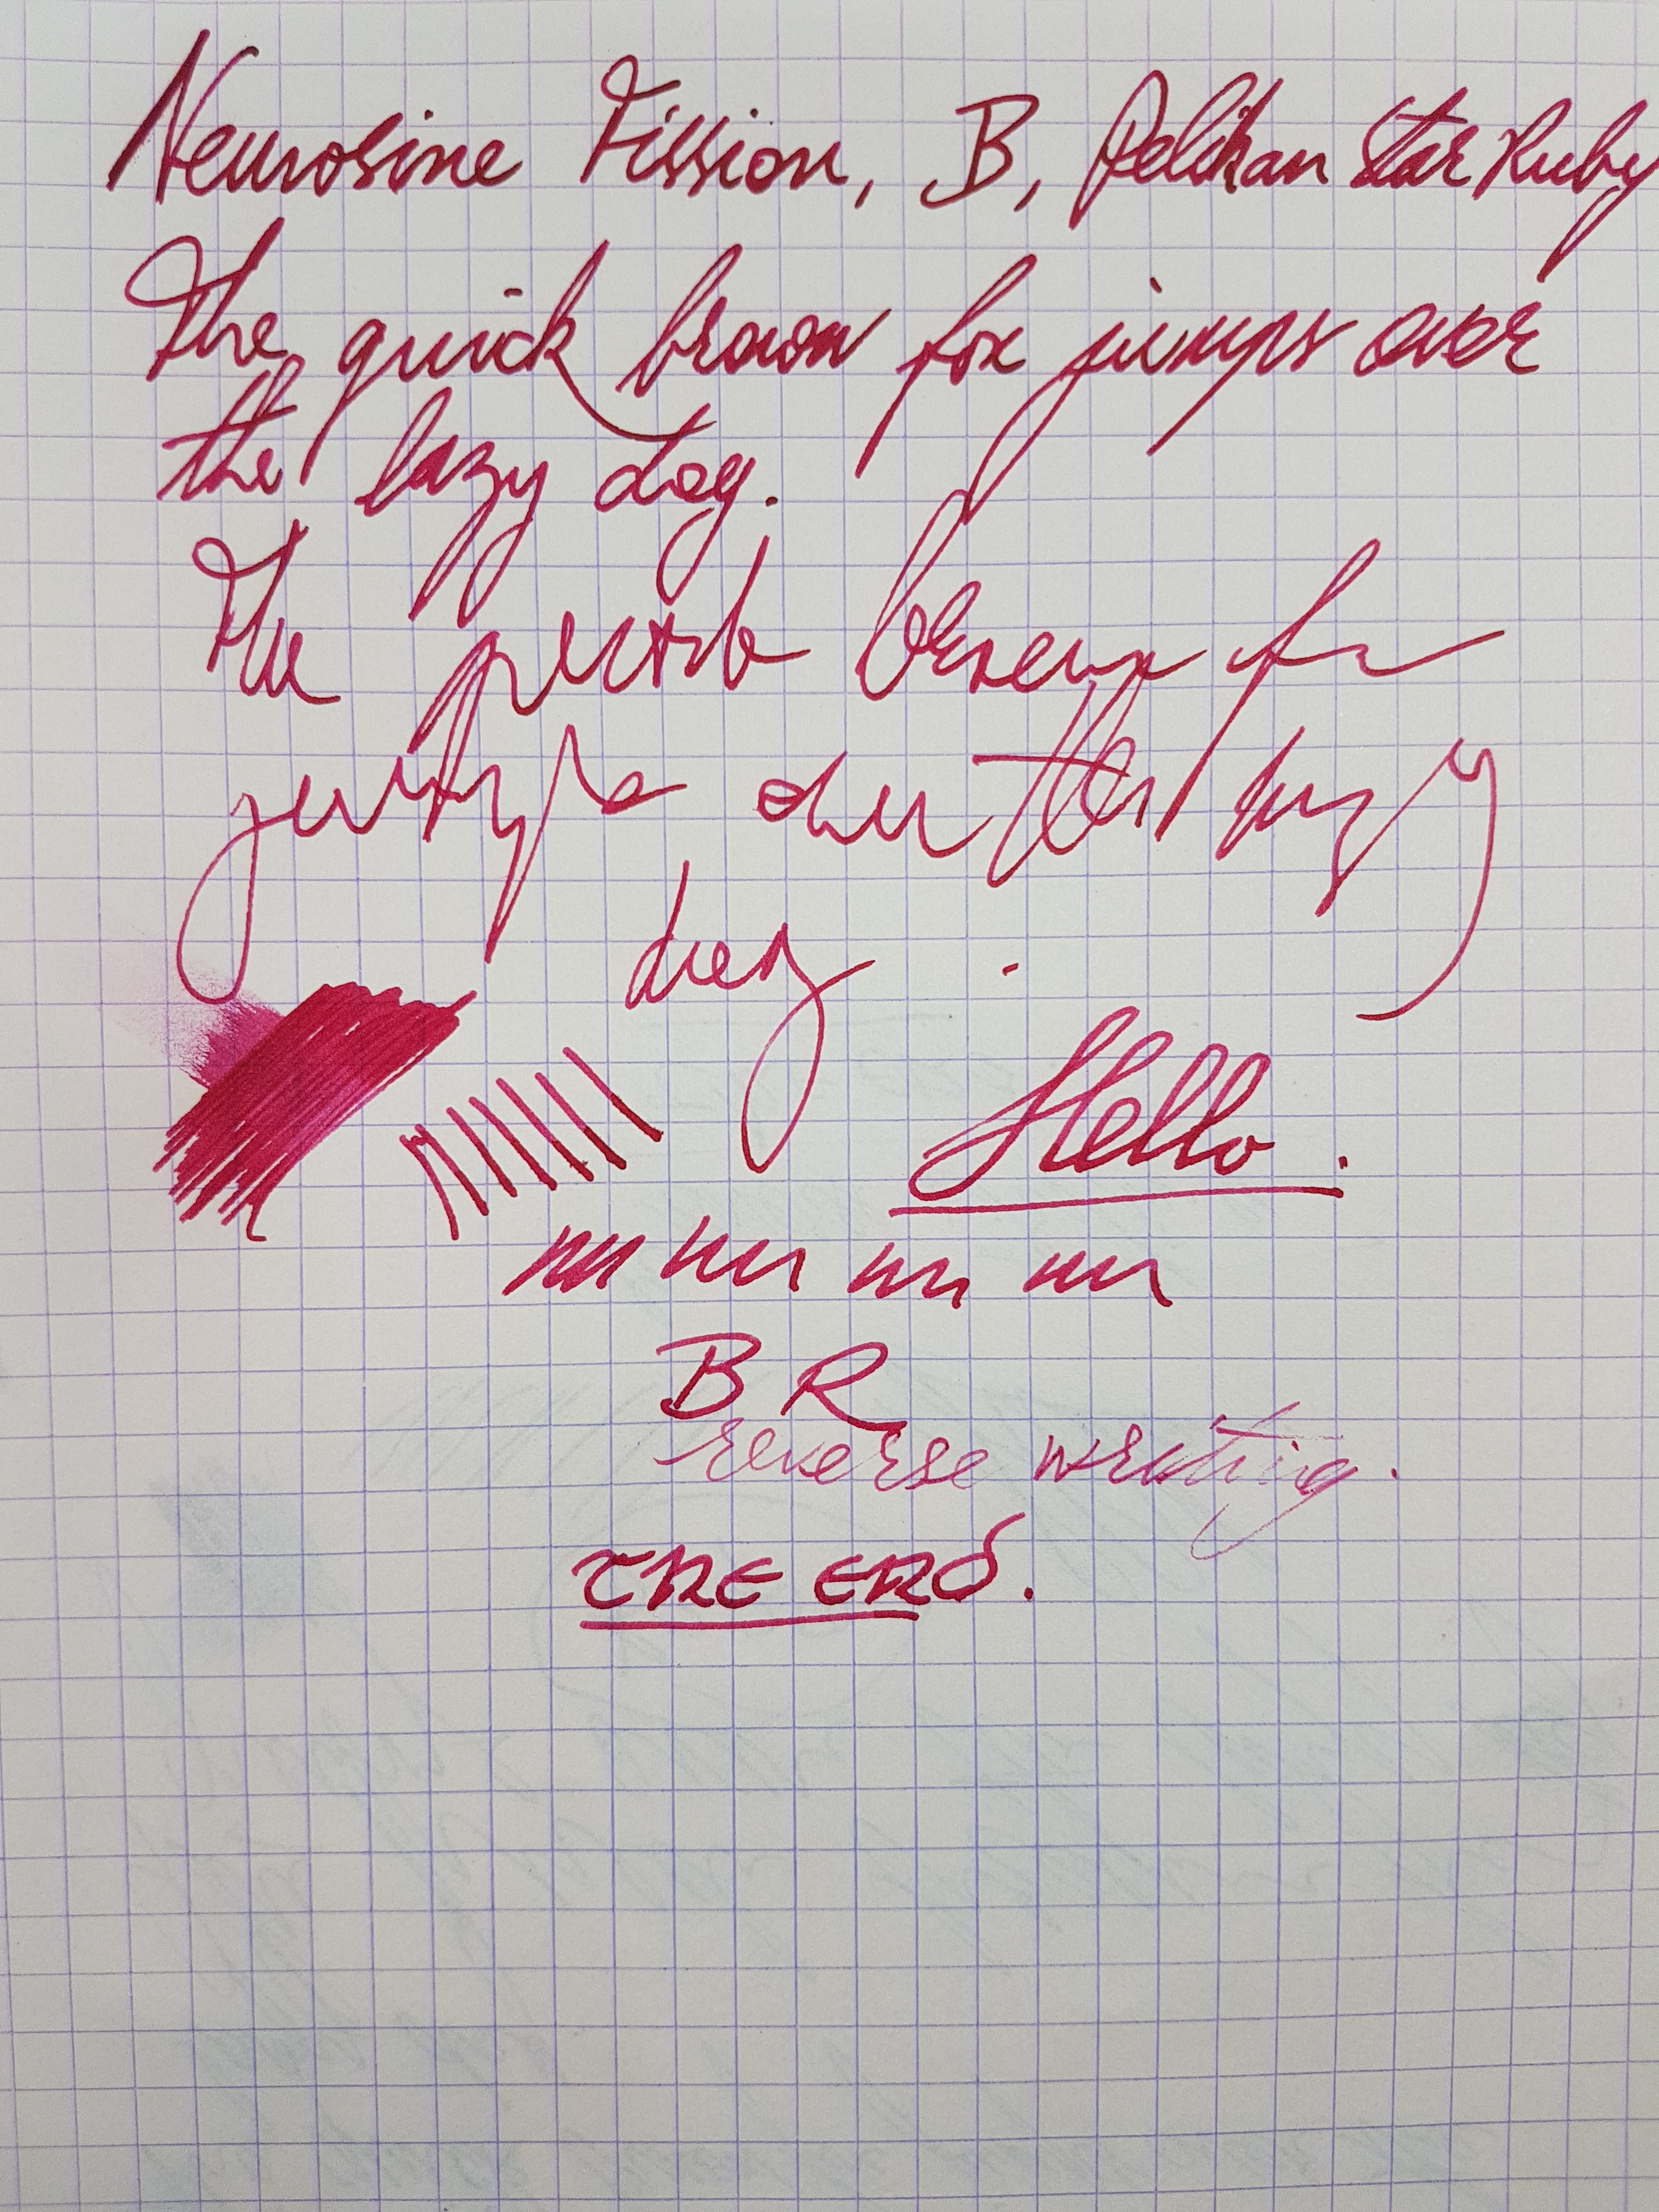 Neurosine Fission, B, Pelikan Star Ruby
The quick brown fox jumps over
the lazy dog.
The quick brown fox
jumps over the lazy
dog .
Hello.
nn nn nn nn
B R
reverse writing.
THE END.